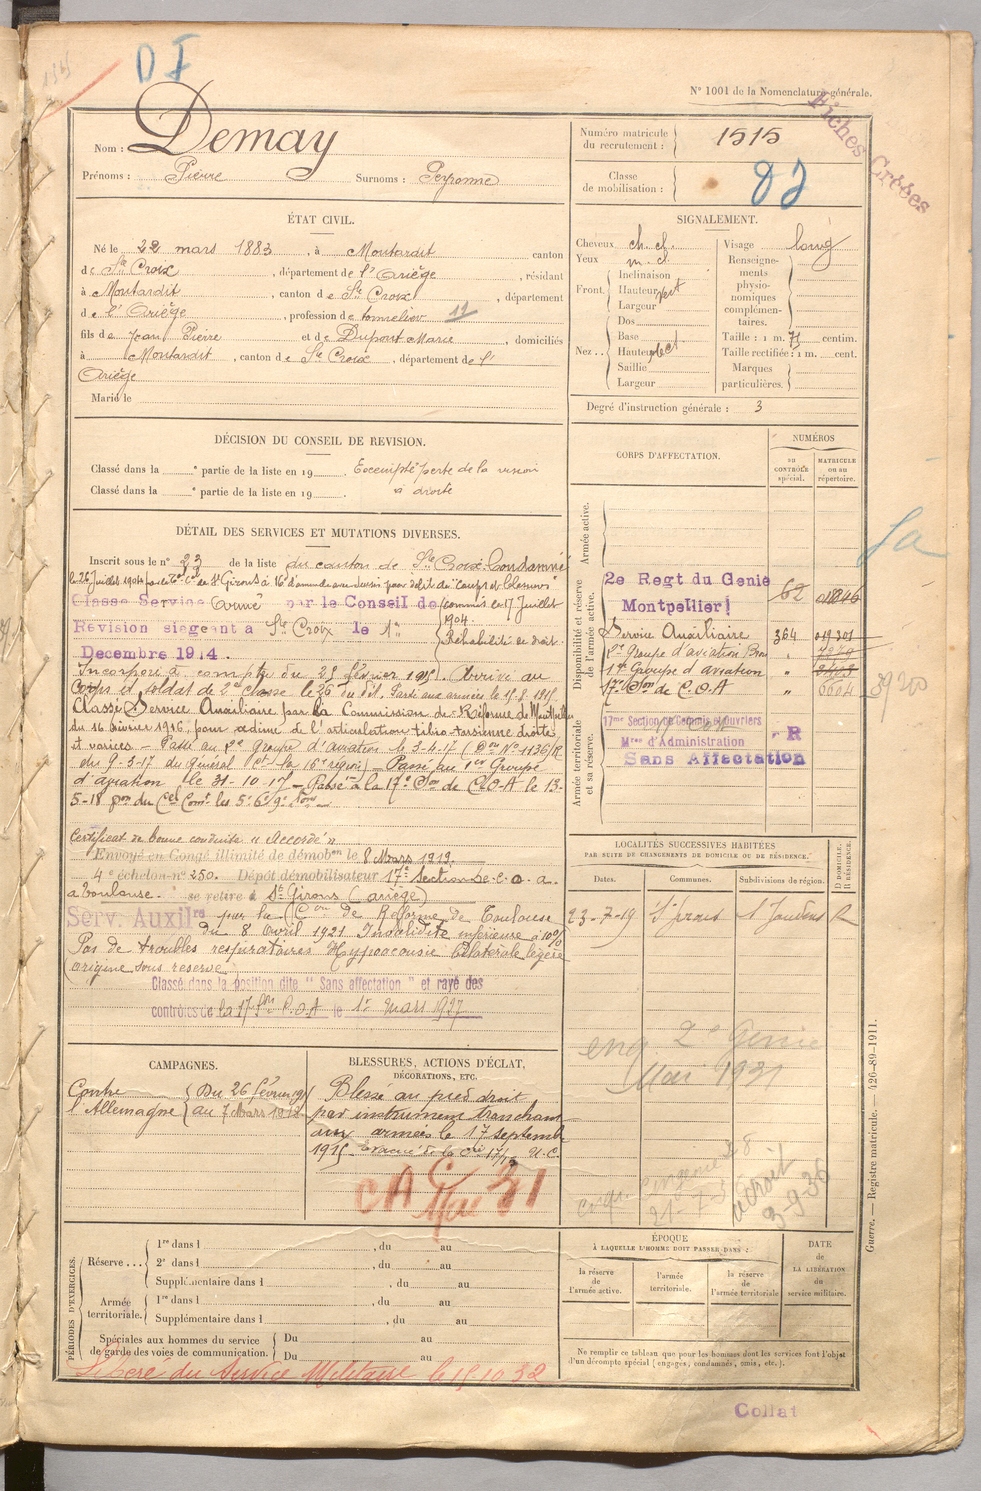 D I
N° 1001 de la Nomenclature générale.
Fiches Créées
Nom : Demay
Prénoms : Pierre Surnoms : Peyronne
Numéro matricule du recrutement : 1515
Classe de mobilisation :
ÉTAT CIVIL.
Né le 22 mars 1883, à Moutardit canton
de Ste Croix, département de l'Ariège, résidant
à Moutardit, canton de Ste Croix, département
de l'Ariège, profession de tonnelier 11
fils de Jean Pierre et de Dupont Marie, domiciliés
à Moutardit, canton de Ste Croix, département de l'
Ariège
Marié le
SIGNALEMENT.
Cheveux ch. cl. Visage long
Yeux m. cl.
Front. Inclinaison
Hauteur vert
Largeur
Nez.. Dos
Base
Hauteur
Saillie
Largeur
Renseignements physionomiques complémentaires.
Taille : 1 m. 75 centim.
Taille rectifiée : 1 m. cent.
Marques particulières.
Degré d'instruction générale : 3
DÉCISION DU CONSEIL DE REVISION.
Classé dans la e partie de la liste en 19 . Exempté perte de la vision
Classé dans la e partie de la liste en 19 . à droite
DÉTAIL DES SERVICES ET MUTATIONS DIVERSES.
Inscrit sous le n° 23 de la liste du canton de Ste Croix. Condamné
le 26 Juillet 1904 par le de St Girons à 16 d'amende avec sursis pour délit de "coups et blessures"
commis le 17 Juillet
1904.
Réhabilité de droit.
Classé Service Armé par le Conseil de
Révision siégeant à Ste Croix le 1er
Decembre 1914.
Incorporé à compter du 25 février 1915. Arrivé au
Corps et soldat de 2e classe le 26 du dit. Parti aux armées le 15.8.1915.
Classé Service Auxiliaire par la Commission de Réforme de Montpellier
du 16 février 1916, pour œdème de l'articulation tibio-tarsienne droite
et varices – Passé au 2e groupe d'aviation le 3-4-17 ( Don N° 1136/R
du 9-3-17 du Général Ct la 16e région) – Passé au 1er Groupe
d'aviation le 31-10-17 – Passé à la 17e Son de C.O.A le 13-
5-18
Certificat de bonne conduite « Accordé »
Envoyé en Congé illimité de démobon le 8 Mars 1919.
4e échelon n° 250. Dépôt démobilisateur 17e Section de C.O.A.
à Toulouse. se retire à St Girons (Ariège)
Serv. Auxilre par la Con De Réforme de Toulouse
du 8 Avril 1921 Invalidité inférieure à 10%
Pas de troubles respiratoires Hypoacousie bilatérale légère
origine sous reserve
Classé dans la position dite " Sans affectation " et rayé des
contrôles de la 17e Son C.O.A le 1er mars 1927
CORPS D'AFFECTATION.
NUMÉROS
au CONTRÔLE spécial.
MATRICULE ou au répertoire.
Armée active.
Disponibilité et réserve de l'armée active.
2e Regt du Genie
Montpellier
62
Service Auxiliaire 364 019301
2e Groupe d'aviation " 7279
1er Groupe d'aviation "
17e Son de C.O.A " 6604
39200
Sa
Armée territoriale et sa réserve.
17me Section de Commis et Ouvriers
Mres d'Administration - R
Sans Affectation
LOCALITÉS SUCCESSIVES HABITÉES
PAR SUITE DE CHANGEMENTS DE DOMICILE OU DE RÉSIDENCE.
Dates. Communes. Subdivisions de région. D DOMICILE. R RÉSIDENCE.
23-7-19 St Girons St Gaudens R
2e Genie
Mai 1931
3-9-36
CAMPAGNES.
Contre l'Allemagne
Du 26 février 1915
au 7 Mars 1919
BLESSURES, ACTIONS D'ÉCLAT,
DÉCORATIONS, ETC.
Blessé au pied droit
par instrument tranchant
aux armées le 17 septembre
1915
CA
Mai 31
PÉRIODES D'EXERCICES.
Réserve ... 1re dans l , du au
2e dans l , du au
Supplémentaire dans l , du au
Armée territoriale. 1re dans l , du au
Supplémentaire dans l , du au
Spéciales aux hommes du service de garde des voies de communication. Du au
Du au
Libéré du Service Militaire le 15.10.32
ÉPOQUE
À LAQUELLE L'HOMME DOIT PASSER DANS :
la réserve de l'armée active.
l'armée territoriale.
la réserve de l'armée territoriale
DATE de LA LIBÉRATION du service militaire.
Ne remplir ce tableau que pour les hommes dont les services font l'objet
d'un décompte spécial (engagés, condamnés, omis, etc.).
Guerre. — Registre matricule. — 426-89-1911.
Collat